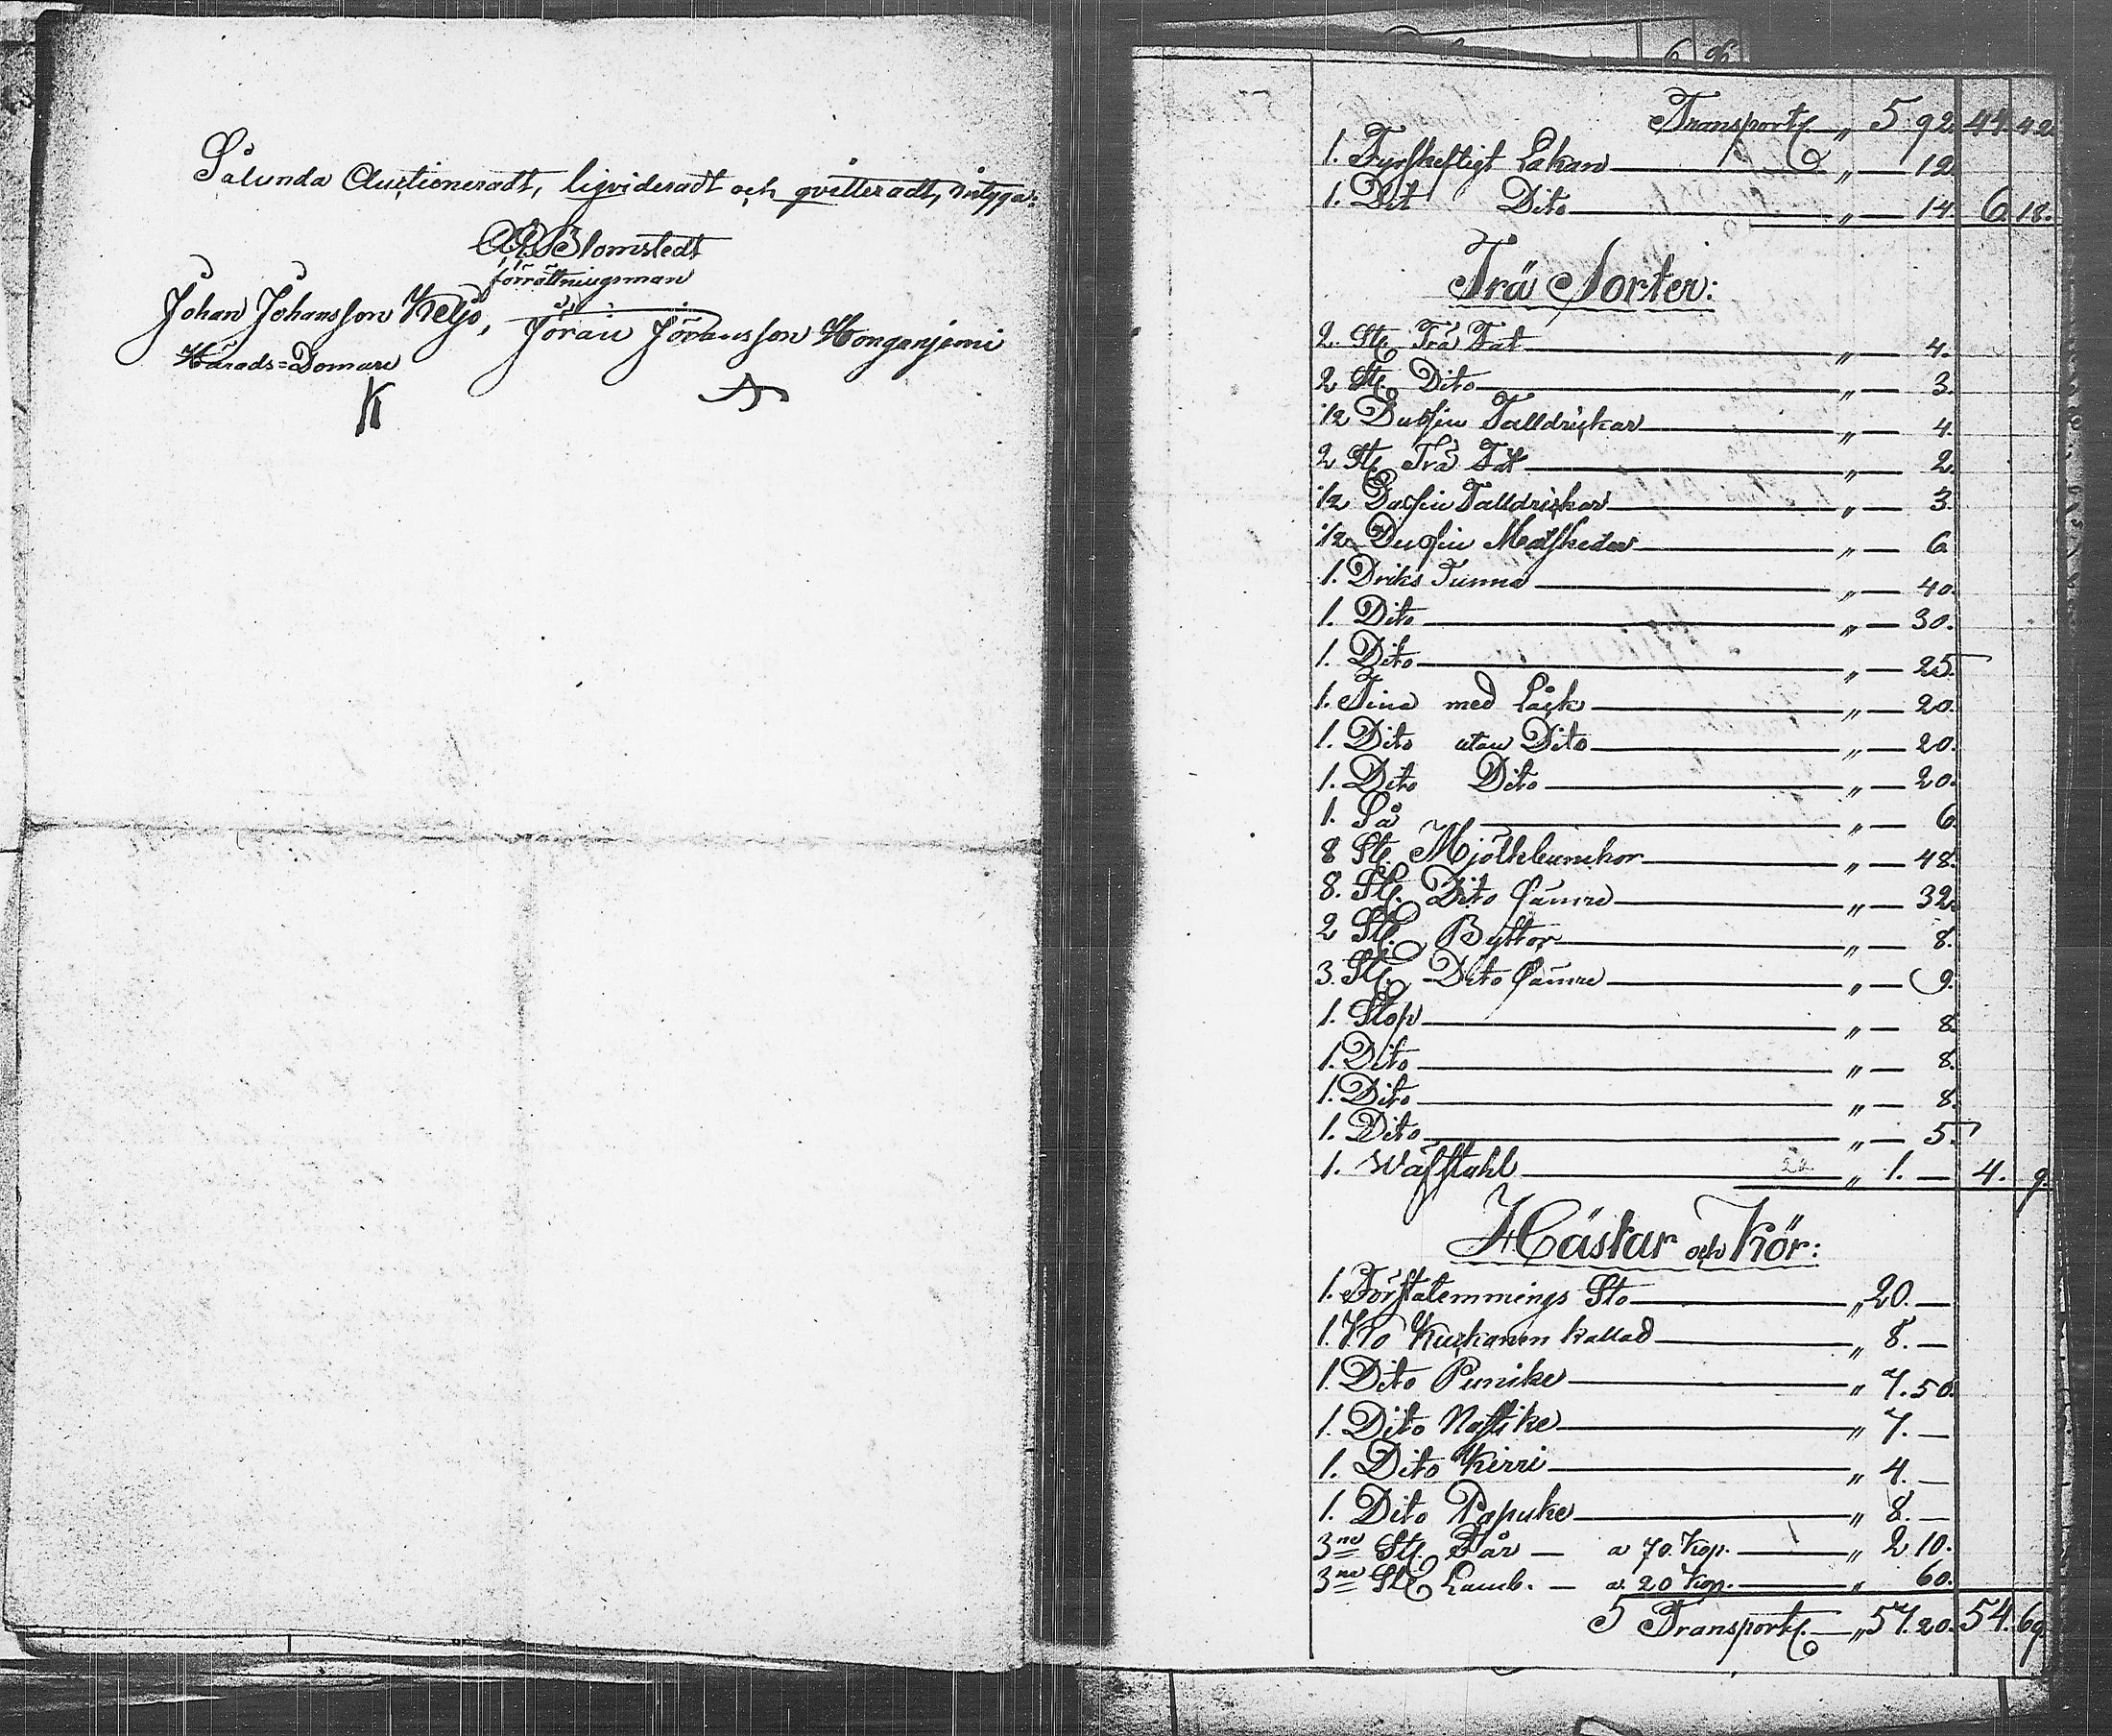 Sålunda Auctioneradt, ligvideradt och qvitteradt, intyga:
A. Blomstedt
förrättningsman
Johan Johansson Keljo, Jöran Jöransson Honganjemi
Härads=Domare
K
Transport „ 5 92. 44. 42.
1. Fyrskeftigt Lakan — „ — 12
1. Dit Dito — „ — 14. 6. 18.
Trä Sorter:
2. St. Trä Fat — „ — 4.
2 St. Dito — „ — 3.
1/2 Dussin Talldrickar — „ — 4.
2 St. Trä Fat — „ — 2.
1/2 Dussin Talldrickar — „ — 3.
1/2 Dussin Matskedar — „ — 6
1. Driks Tunna — „ — 40.
1. Dito — „ — 30.
1. Dito — „ — 25.
1. Tina med Låck — „ — 20.
1. Dito utan Dito — „ — 20.
1. Dito Dito — „ — 20.
1. Så — „ — 6.
8 St. Mjölkbunkor — „ — 48.
8. St. Dito sämre — „ — 32.
2 St. Byttor — „ — 8.
3. St. Dito sämre — „ — 9.
1. Stop — „ — 8.
1. Dito — „ — 8.
1. Dito — „ — 8.
1. Dito — „ — 5.
1. Wäfstahl — „ 1. — 4. 9.
Hästar och Kör:
1. Förstalemmings Sto — „ 20. —
1. Ko Kuckanen kallad — „ 8. —
1. Dito Punike — „ 7. 50.
1. Dito Nastike — „ 7. —
1. Dito Kirri — „ 4. —
1. Dito Papuke — „ 8. —
3ne St. Får — a 70. Kop. — „ 2 10.
3ne St. Lamb. — a. 20 Kop. — „ 60.
Transport — „ 57. 20. 54. 69.